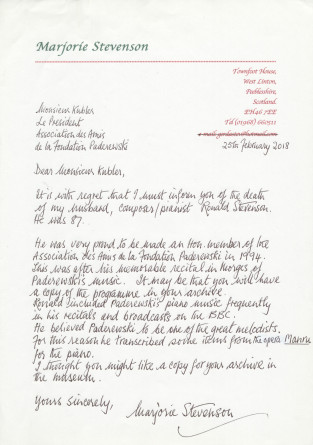 Marjorie Stevenson
Townfoot House,
West Linton,
Peeblesshire,
Scotland.
EH46 7EE
Tel (01968) 660511
25th February 2018
Monsieur Kubler,
Le President
Association des Amis
de la Fondation Paderewski
Dear Monsieur Kubler,
It is with regret that I must inform you of the death
of my husband, composer/pianist Ronald Stevenson.
He was 87.
He was very proud to be made an Hon. member of the
Association des Amis de la Fondation Paderewski in 1994.
This was after his memorable recital in Morges of
Paderewski's music. It may be that you will have
a copy of the programme in your archive.
Ronald included Paderewski's piano music frequently
in his recitals and broadcasts on the BBC.
He believed Paderewski to be one of the great melodists.
For this reason he transcribed some items from the opera Manru
for the piano.
I thought you might like a copy for your archive in
the museum.
Yours Sincerely,
Marjorie Stevenson